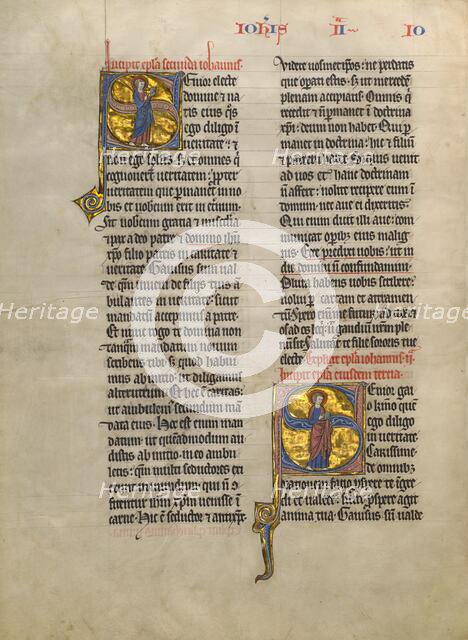 IOHIS II IO
Incipit epla secunda iohannis
Senior electe
domine & na
tis eius qs
ego diligo i
ueritate &
non ego solus s; & omnes q
cognouerunt ueritatem: ppter
ueritatem que permanet in no
bis et uobiscum erit in eternum
Sit uobiscum gratia & misedia
& pax a deo patre & domino ihu
xpo filio patris in caritate &
ueritate Gauisus sum ual
de qm inueni de filiis tuis a
bulantes in ueritate: sicut
mandatum accepimus a patre
Et nunc rogo te domina non
tanqm mandatum nouum
scribens tibi: s; quod habui
mus ab initio: ut diligamus
alterutrum Et hec e caritas:
ut ambulem' secundum man
data eius Hoc est enim man
datum: ut quemadmodum au
distis ab initio: in eo ambu
letis: qm multi seductores exi
erunt in mundum: qui n con
fitentur ihm xpm uenisse in
carne Hic e seductor & antixps
Videte uosmetipsos: ne perdatis
que operati estis: s; ut mercedem
plenam accipiatis Omnis q
recedit & n permanet i doctrina
xpi: deum non habet Qui p
manet in doctrina: hic & filium
& patrem habet Si quis uenit
ad uos et hanc doctrinam
n affert: nolite recipere eum in
domum: nec aue ei dixeritis
Qui enim dixit illi aue: com
municat operibus eius malig
nis Ecce predixi uobis: ut in
die domini n confundamini
Plura habens uobis scribere:
nolui p cartam et atramen
tum Spero enim me futurum
apud uos & os ad os loqui: ut gaudium urm ple
num sit Salutat te filie sororis tue
electe Explicit epla iohannis ii
Incipit epla eiusdem tercia
Senior gai
o kmo que
ego diligo
in ueritate
Carissime
de omnibz
orationem facio pspere te igre
di et ualere: sicut pspere agit
anima tua Gauisus sum ualde
Heritage
Heritage
Heritage
Heritage
Images
Images
©